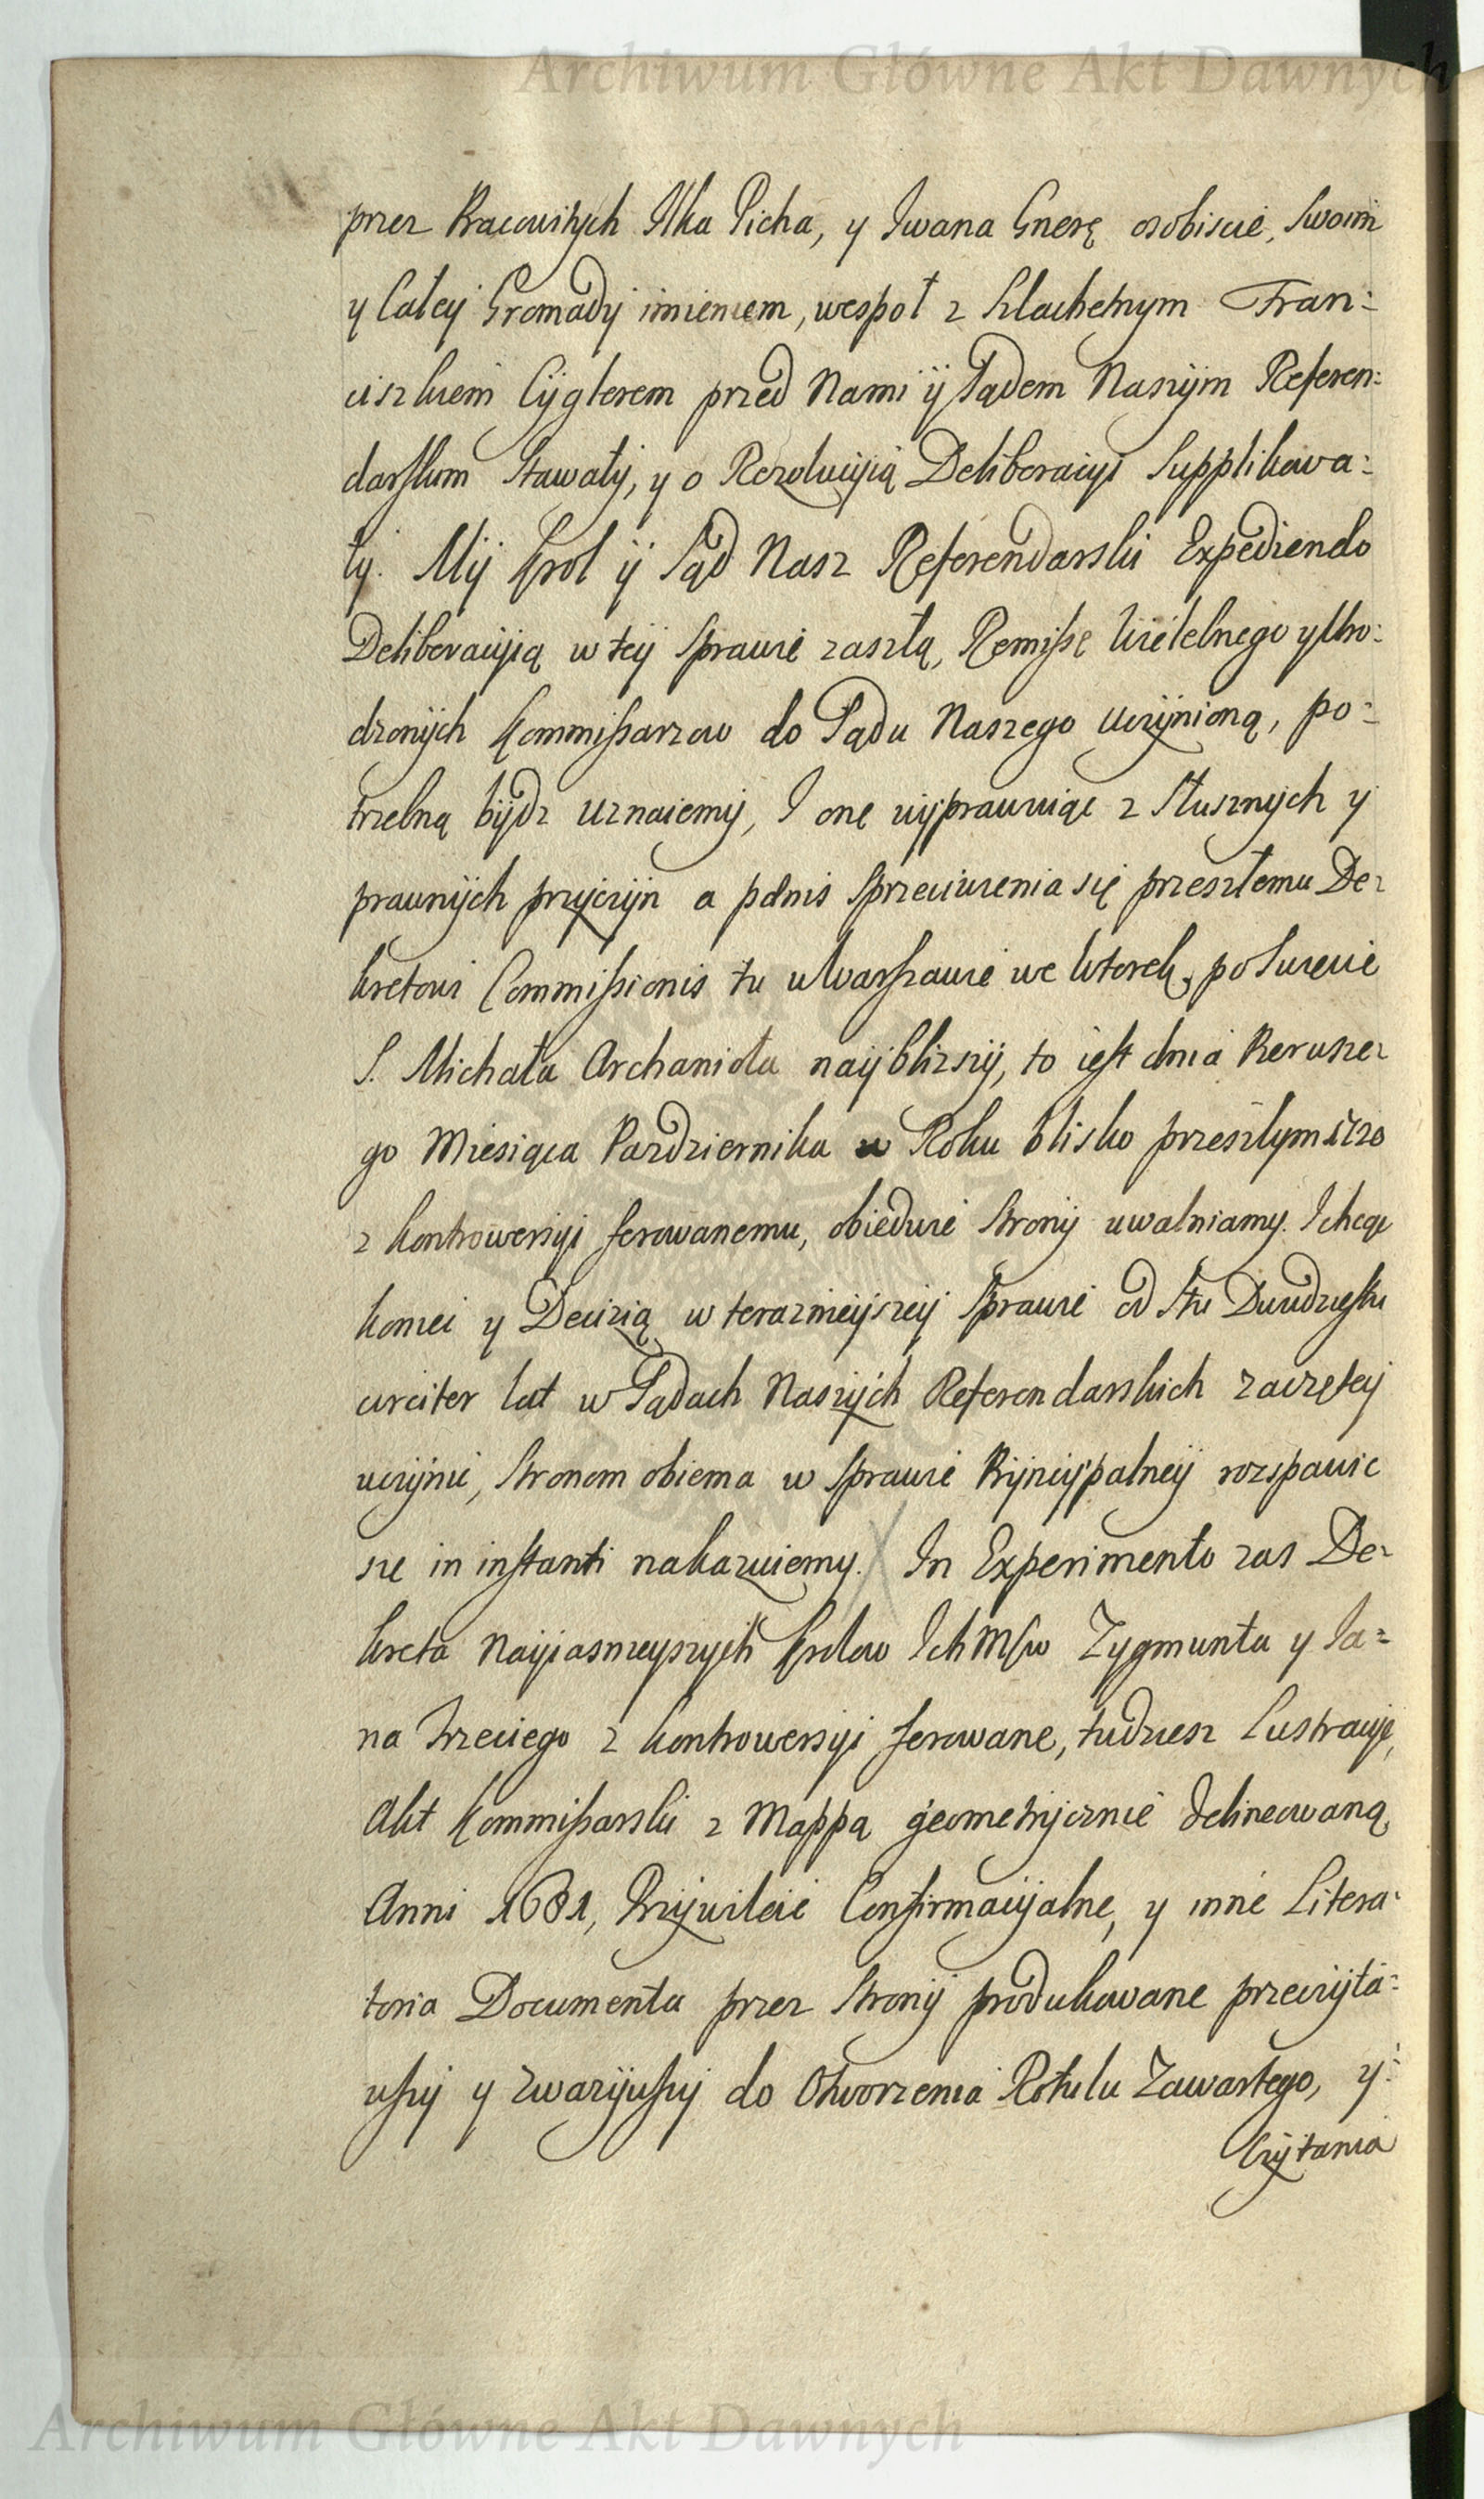 Archiwum Główne Akt Dawnych
przez Pracowitych Ilka Picha, y Iwana Gnerę osobiscie, Swoim
y Całey Gromady imieniem, wespoł z Szlachetnym Fran:
ciszkiem Cyglerem przed Nami y Sądem Naszym Referen:
darskim Stawały, y o Rezolucyią Deliberacyi Supplikowa:
ły. My Krol y Sąd Nasz Referendarski Expediendo
Deliberacyią w tey Sprawie zaszłą, Remissę Wielebnego y Uro:
dzonych Kommissarzow do Sądu Naszego uczynioną, po:
trzebną bydz uznaiemy, I onę wyprawuiąc z Słusznych y
prawnych przyczyn a pænis Sprzeciwienia się przeszłemu De:
kretowi Commissionis tu w Warszawie we Wtorek, po Swiecie
S. Michała Archanioła nayblizszy, to iest dnia Pierwsze:
go Miesiąca Pazdziernika w Roku blisko przeszłym 1720
z kontrowersyi ferowanemu, obiedwie Strony uwalniamy. I chcąc
koniec y Decizią w terazniejszey Sprawie od Stu Dwudziestu
circiter lat w Sądach Naszych Referendarskich zaczętey
uczynić, Stronom obiema w Sprawie Pryncypalney rozspawic
się in instanti nakazuiemy. In Experimento zas De:
kreta Nayiasnieyszych Krolow Ich Mśw Zygmunta y Ja:
na Trzeciego z kontrowersyi ferowane, tudziesz Lustracyie,
Akt Kommissarski z Mappą geometrycznie delineowaną
Anni 1681, Przywileie Confirmacyialne, y inne Litera:
toria Documenta przez Strony produkowane przeczyta:
wszy y zwazywszy do Otworzenia Rotulu Zawartego, y:
Czytania
Archiwum Główne Akt Dawnych